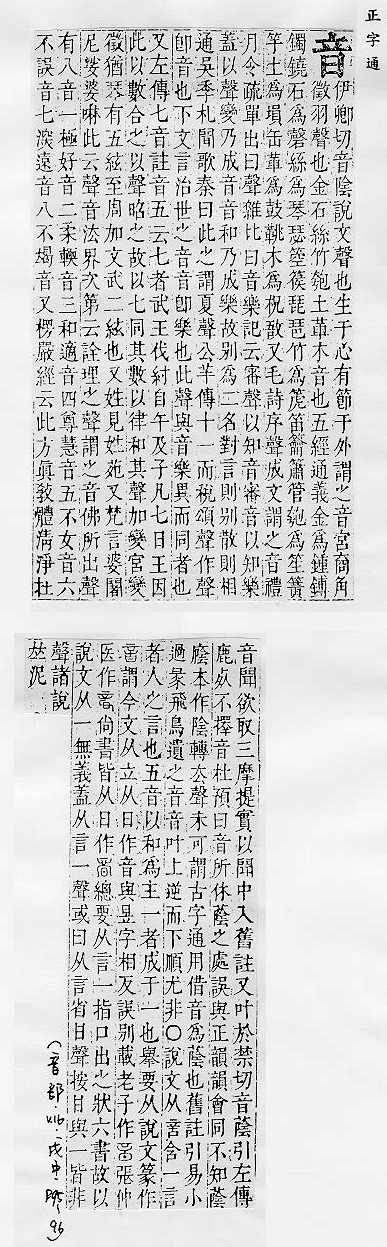 正字通
音 伊卿切音陰說文聲也生于心有節于外謂之音宮商角
徵羽聲也金石絲竹匏土革木音也五經通義金為鍾鎛
鐲鐃石為磬絲為琴瑟箜篌琵琶竹為箎笛籥簫管匏為笙簧
竽土為塤缶革為鼓鞉木為柷敔又毛詩序聲成文謂之音禮
月令疏單出曰聲雜比曰音樂記云審聲以知音審音以知樂
蓋以聲變乃成音音和乃成樂故別為二名對言則別散則相
通吳季札聞歌秦曰此之謂夏聲公羊傳十一而稅頌聲作聲
卽音也下文言治世之音音卽樂也此聲與音樂異而同者也
又左傳七音註音五云七者武王伐紂自午及子凡七日王因
此以數合之以聲昭之故以七同其數以律和其聲加變宮變
徵猶琴有五絃至周加文武二絃也又姓見姓苑又梵言婆闍
尼娑婆啉此云聲音法界次第云詮理之聲謂之音佛所出聲
有八音一極好音二柔輭音三和適音四尊慧音五不女音六
不誤音七深遠音八不竭音又楞嚴經云此方眞敎體淸淨在
音聞欲取三摩提實以聞中入舊註又叶於禁切音蔭引左傳
鹿𣦸不擇音杜預曰音所休蔭之處誤與正韻韻會同不知蔭
廕本作陰轉去聲未可謂古字通用借音為蔭也舊註引易小
過彖飛鳥遺之音音叶上逆而下順尤非○說文从言含一言
者人之言也五音以和為主一者成于一也舉要从說文篆作
謂今文从立从日作音與昱字相反誤別載老子作 張仲
医作 尚書皆从日作 總要从言一指口出之狀六書故以
說文从一無義蓋从言一聲或曰从言省目聲按目與一皆非
聲諸說
𠀤泥
(音部